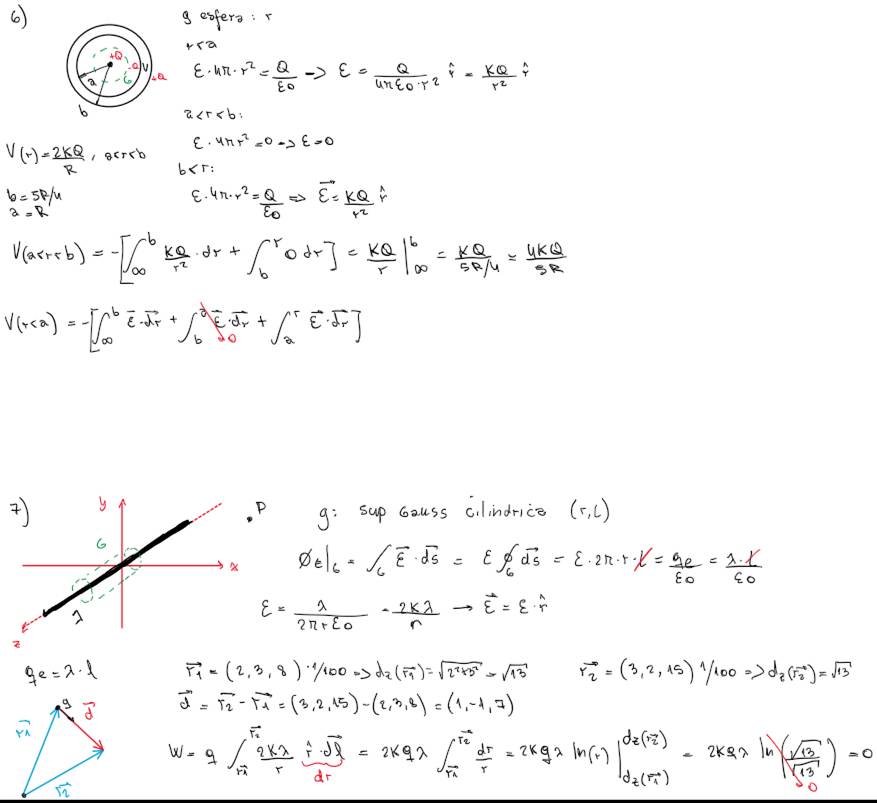 6)
g esfera: r
r<a
ε·4π·r² = Q/ε0 -> ε = Q/(4πε0·r²) r̂ = KQ/r² r̂
+Q
-Q
+Q
a
G
b
a<r<b:
ε·4πr² = 0 -> ε=0
V(r) = 2KQ/R, a<r<b
b<r:
b = 5R/4
a = R
ε·4π·r² = Q/ε0 => ε⃗ = KQ/r² r̂
V(a<r<b) = -[∫_∞^b KQ/r² · dr + ∫_b^r 0 dr] = KQ/r |_∞^b = KQ/(5R/4) = 4KQ/5R
V(r<a) = -[∫_∞^b ε⃗·dr⃗ + ∫_b^a ε⃗·dr⃗ + ∫_a^r ε⃗·dr⃗]
0
7)
y
P
g: sup Gauss cilindrica (r,l)
G
x
λ
z
Øε|_G = ∫_G ε⃗·ds⃗ = ε ∮_G ds⃗ = ε·2π·r·l = qe/ε0 = λ·l/ε0
ε = λ/(2πrε0) = 2Kλ/r -> ε⃗ = ε·r̂
qe = λ·l
r1⃗ = (2,3,8)·1/100 => dz(r1⃗) = √(2²+3²) = √13
r2⃗ = (3,2,15)·1/100 => dz(r2⃗) = √13
d⃗ = r2⃗ - r1⃗ = (3,2,15)-(2,3,8) = (1,-1,7)
q
d⃗
r1⃗
r2⃗
W = q ∫_r1⃗^r2⃗ 2Kλ/r r̂·dl⃗ = 2Kqλ ∫_r1⃗^r2⃗ dr/r = 2Kqλ ln(r) |_dz(r1⃗)^dz(r2⃗) = 2Kqλ ln(√13/√13) = 0
dr
0